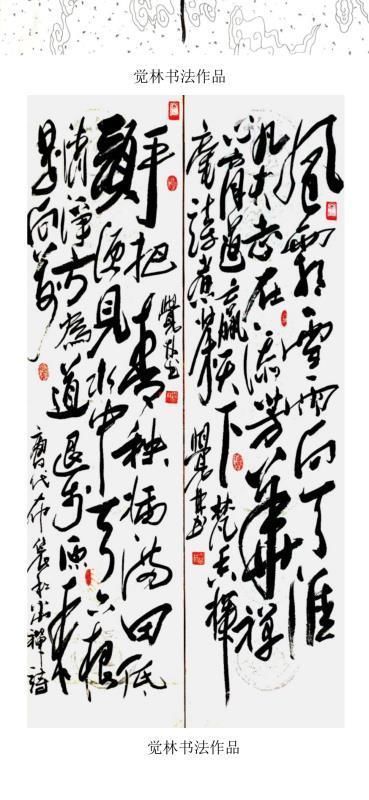 觉林书法作品
風霜雪雨向天涯
志在添芳華禪
心有道贏天下梵音揮
毫詩煮
覺林書
手把青秧插滿田低
頭便見水中天六根
清淨方為道退步原來
是向前
唐代布袋和尚禪詩
覺林書
觉林书法作品